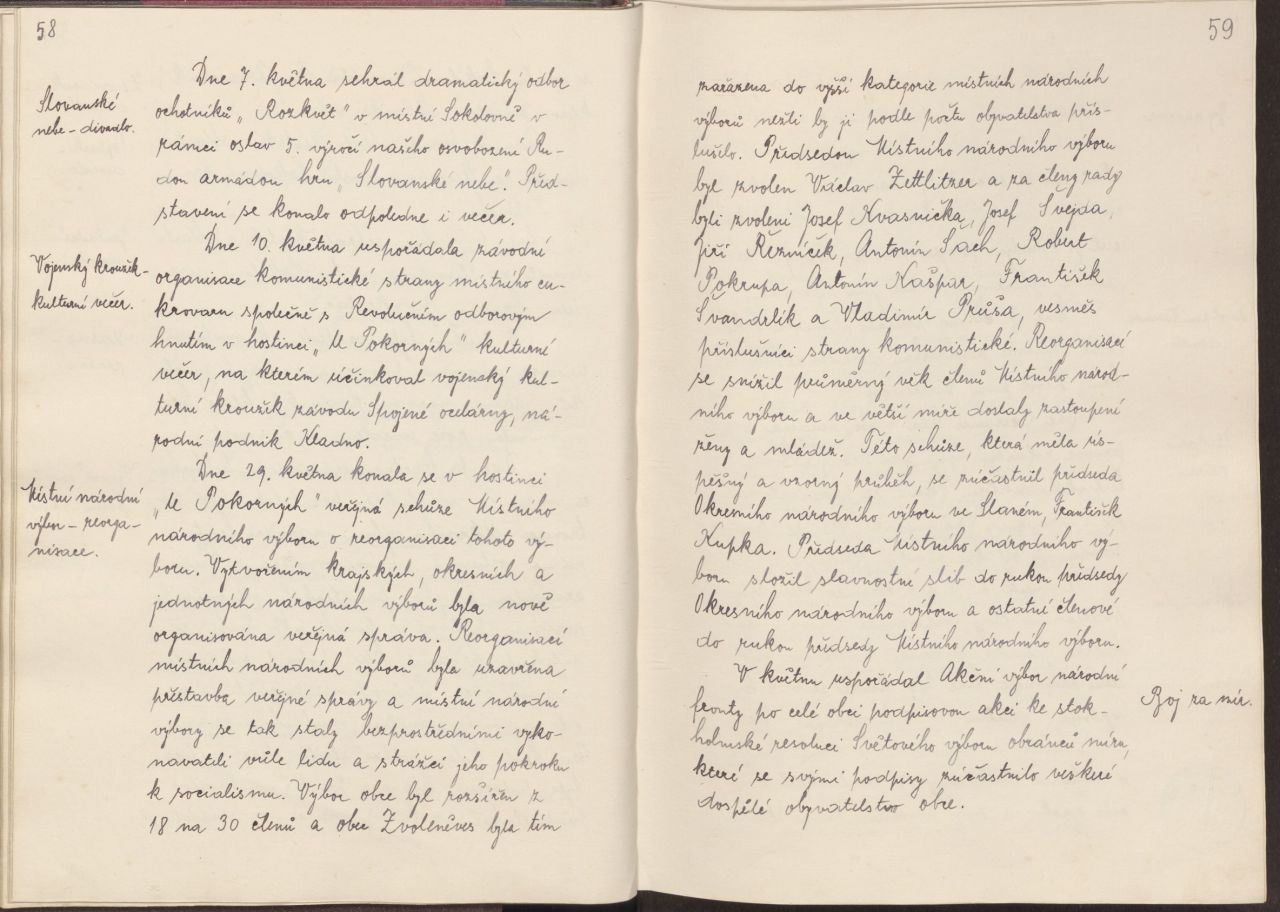 58
Slovanské
nebe - divadlo.
Dne 7. května sehrál dramatický odbor
ochotníků „Rozkvět" v místní Sokolovně v
rámci oslav 5. výročí našeho osvobození Ru-
dou armádou hru „Slovanské nebe". Před-
stavení se konalo odpoledne i večer.
Vojenský kroužek -
kulturní večer.
Dne 10. května uspořádala závodní
organisace komunistické strany místního cu-
krovaru společně s Revolučním odborovým
hnutím v hostinci „U Pokorných" kulturní
večer, na kterém účinkoval vojenský kul-
turní kroužek závodu Spojené ocelárny, ná-
rodní podnik Kladno.
Místní národní
výbor - reorga-
nisace.
Dne 29. května konala se v hostinci
„U Pokorných" veřejná schůze Místního
národního výboru o reorganisaci tohoto vý-
boru. Vytvořením krajských, okresních a
jednotných národních výborů byla nově
organisována veřejná správa. Reorganisací
místních národních výborů byla uzavřena
přestavba veřejné správy a místní národní
výbory se tak staly bezprostředními vyko-
navateli vůle lidu a strážci jeho pokroku
k socialismu. Výbor obce byl rozšířen z
18 na 30 členů a obec Zvoleněves byla tím
59
zařazena do vyšší kategorie místních národních
výborů nežli by jí podle počtu obyvatelstva přís-
lušelo. Předsedou Místního národního výboru
byl zvolen Václav Zettlitzer a za členy rady
byli zvoleni Josef Kvasnička, Josef Švejda,
Jiří Řezníček, Antonín Šach, Robert
Pokrupa, Antonín Kašpar, František
Švandrlík a Vladimír Průša, vesměs
příslušníci strany komunistické. Reorganisací
se snížil průměrný věk členů Místního národ-
ního výboru a ve větší míře dostaly zastoupení
ženy a mládež. Této schůze, která měla ús-
pěšný a vzorný průběh, se zúčastnil předseda
Okresního národního výboru ve Slaném, František
Kupka. Předseda Místního národního vý-
boru složil slavnostní slib do rukou předsedy
Okresního národního výboru a ostatní členové
do rukou předsedy Místního národního výboru.
V květnu uspořádal Akční výbor národní
fronty po celé obci podpisovou akci ke stok-
holmské resoluci Světového výboru obránců míru,
které se svými podpisy zúčastnilo veškeré
dospělé obyvatelstvo obce.
Boj za mír.